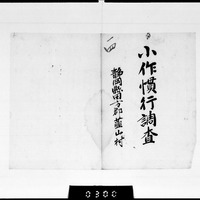 小作慣行調査
静岡縣田方郡韮山村
二四
0300